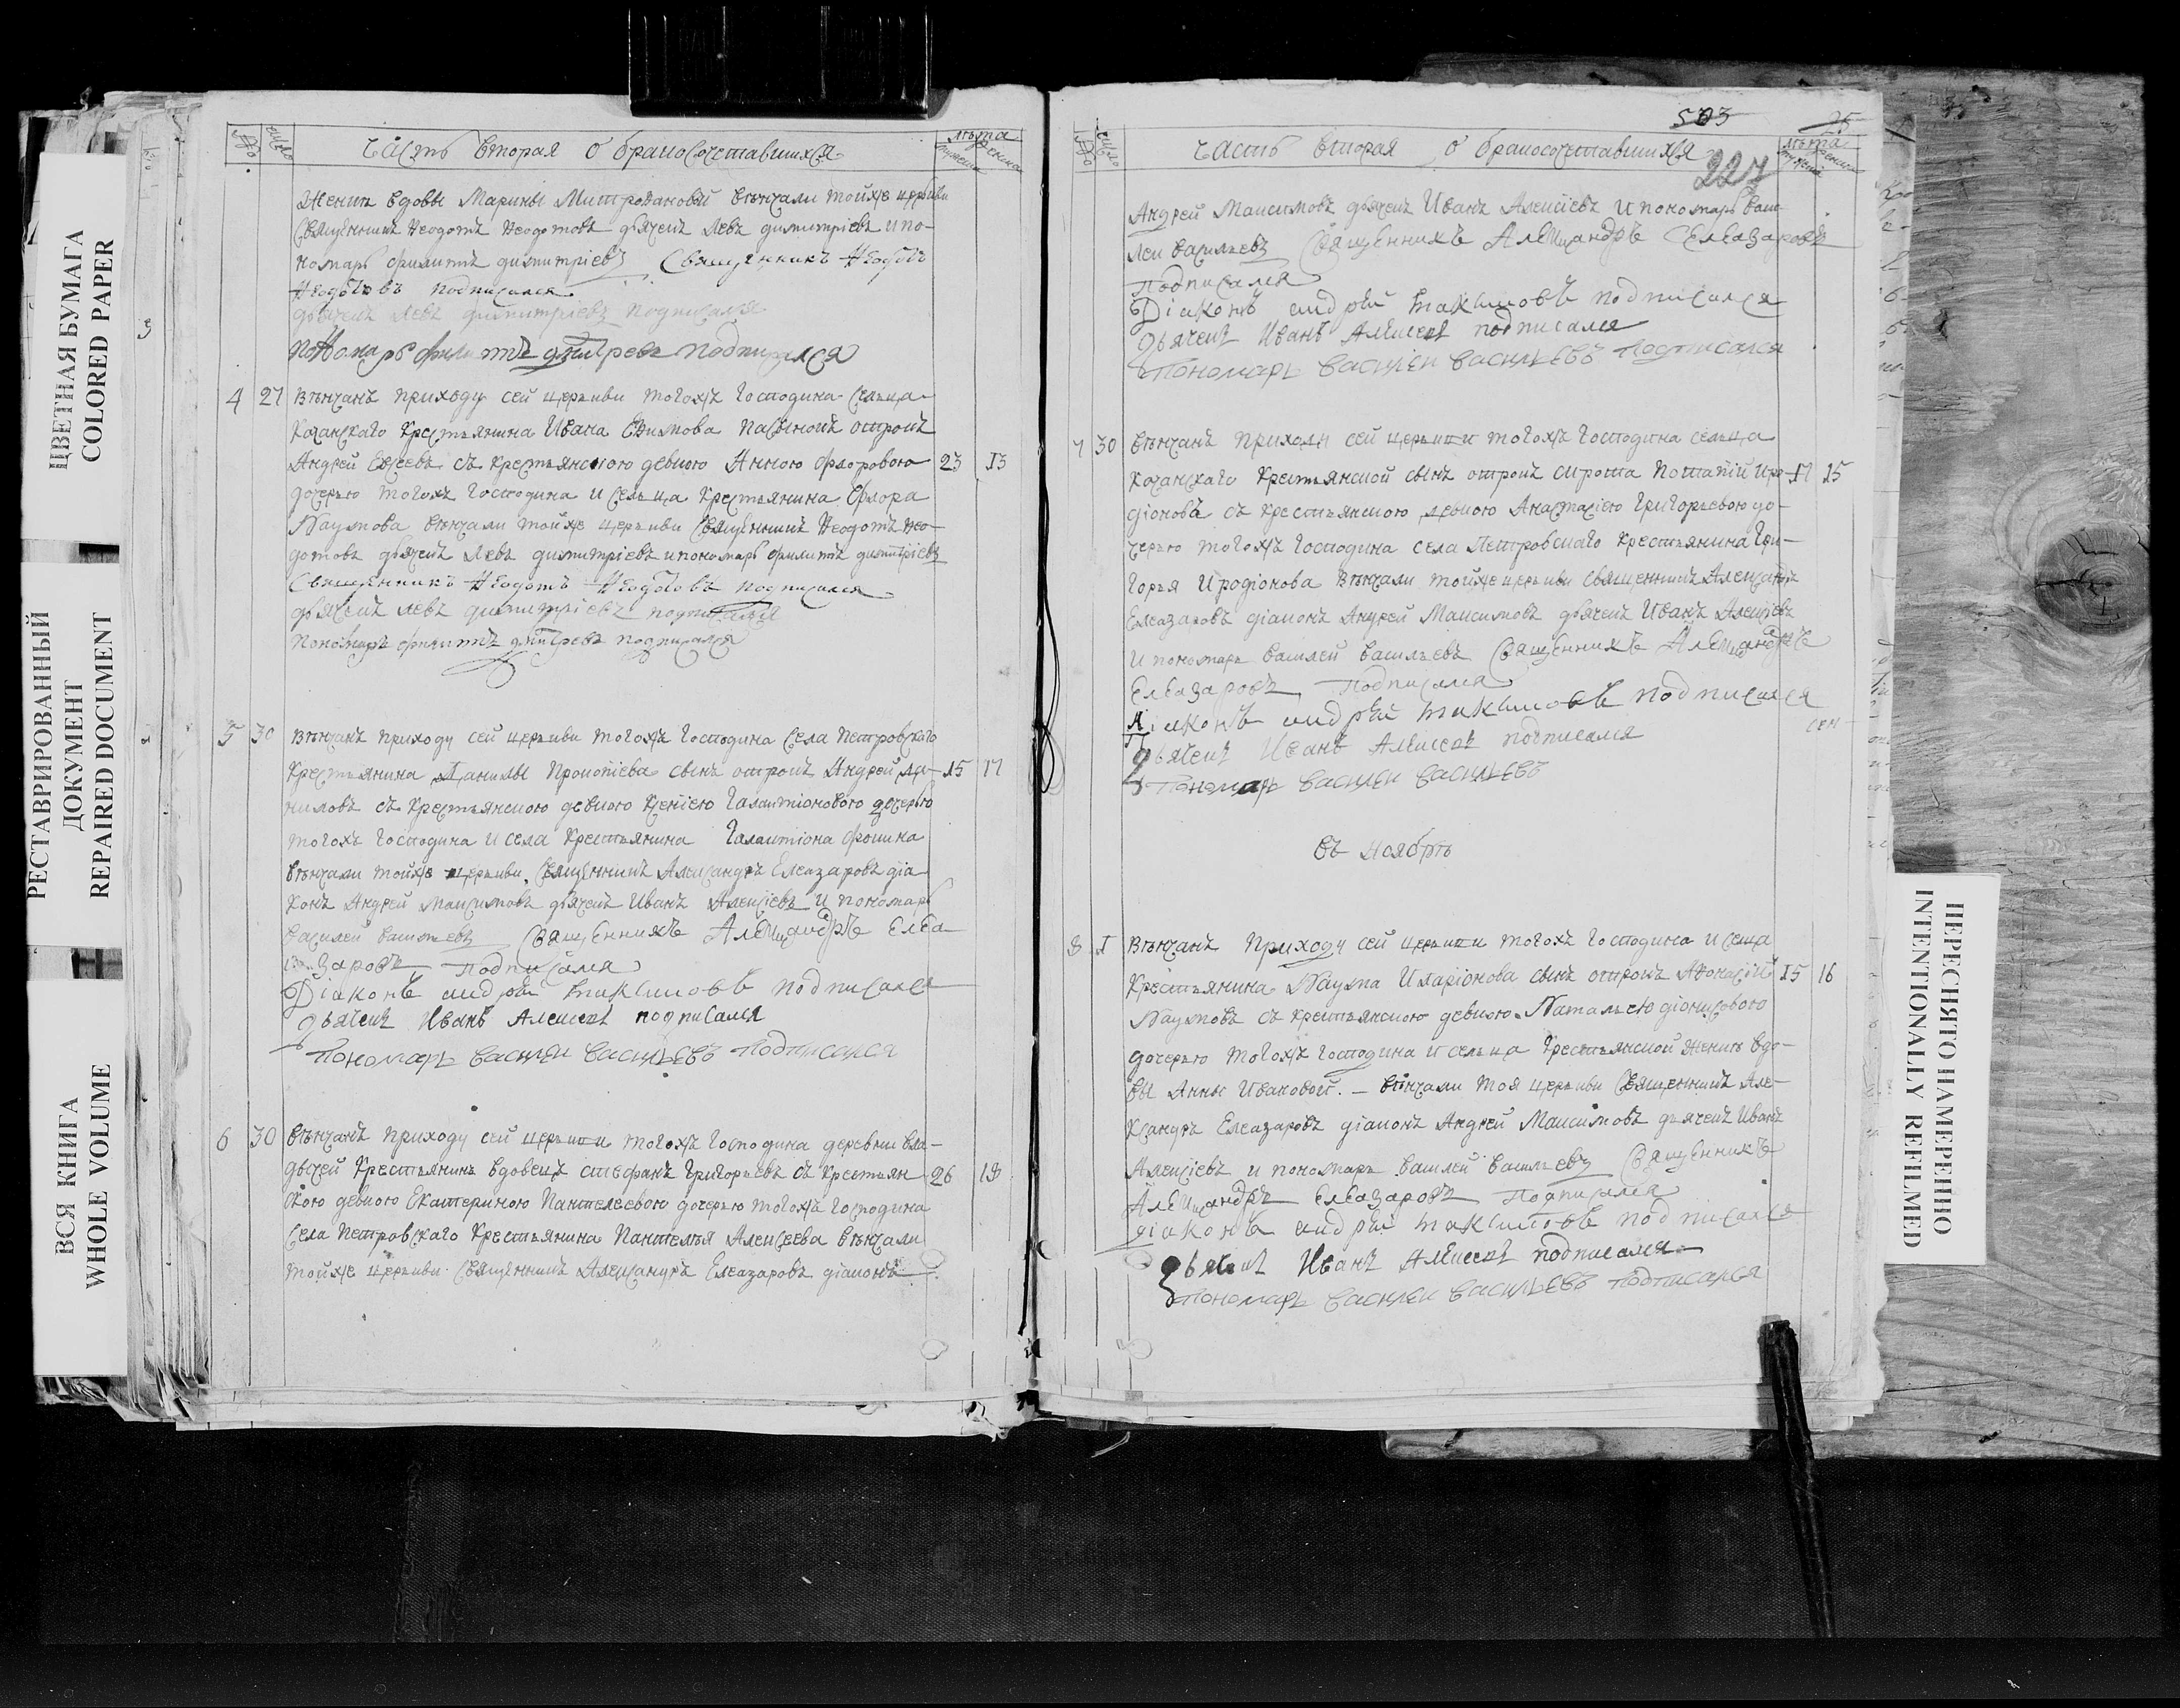 ЦВЕТНАЯ БУМАГА
COLORED PAPER
РЕСТАВРИРОВАННЫЙ
ДОКУМЕНТ
REPAIRED DOCUMENT
ВСЯ КНИГА
WHOLE VOLUME
число лѣта
часть вторая о бракосочетавшихся
Женки вдовы Марины Митрофановой вѣнчали тойже церькви
Священникъ Ѳеодотъ Ѳеодотовъ дьячекъ Левъ димитріевъ и по-
номарь филипъ димитріевъ Священникъ Ѳеодотъ
Ѳеодотовъ подписался
дьячекъ Левъ димитріевъ подписался
Пономарь филиппъ дмитревъ подписался
4 27 Вѣнчанъ приходу сей церькви тогожъ Господина сельца
Казанскаго Крестьянина Ивана Ефимова пасынокъ отрокъ
Андрей Евсеевъ съ крестьянскою девкою Анною Флоровою 23 13
дочерью тогожъ Господина и сельца Крестьянина Флора
Наумова вѣнчали тойже церькви Священникъ Ѳеодотъ Ѳео-
дотовъ дьячекъ Левъ димитріевъ и пономарь филиппъ димитріевъ
Священникъ Ѳеодотъ Ѳеодотовъ подписался
дьячекъ Левъ димитріевъ подписался
Пономарь филиппъ дмитревъ подписался
5 30 Вѣнчанъ приходу сей церькви тогожъ Господина Села Петровского
Крестьянина Данилы Прокопіева сынъ отрокъ Андрей да- 15 17
ниловъ съ крестьянскою девкою Ксеніею Галактіоновою дочерью
тогожъ Господина и села Крестьянина Галактіона Фокина
вѣнчали тойже церькви Священникъ Александръ Елеазаровъ діа-
конъ Андрей Максимовъ дьячекъ Иванъ Алексіевъ и пономарь
Василей Васильевъ Священникъ Александръ Елеа-
заровъ Подписался
Діаконъ андрѣй максимовъ подписался
дьячекъ Иванъ Алексеевъ подписался
Пономарь Василеи Васильевъ Подписался
6 30 Вѣнчанъ приходу сей церькви тогожъ Господина деревни Вла-
дычей Крестьянинъ вдовецъ стефанъ Григорьевъ съ крестьян- 26 18
скою девкою Екатериною Пантелеевою дочерью тогожъ Господина
Села Петровскаго Крестьянина Пантелѣя Алексеева вѣнчали
тойже церькви Священникъ Александръ Елеазаровъ діаконъ
503 25
число лѣта
часть вторая о бракосочетавшихся
227
Андрей Максимовъ дьячекъ Иванъ Алексіевъ и пономарь Васи-
леи Васильевъ Священникъ Александръ Елеазаровъ
Подписался
Діаконъ андрѣй максимовъ подписался
дьячекъ Иванъ Алексеевъ подписался
Пономарь Василеи Васильевъ Подписался
7 30 Вѣнчанъ приходу сей церькви тогожъ Господина сельца
Казанскаго Крестьянской сынъ отрокъ сирота Потапій Иро- 17 15
діоновъ съ крестьянскою девкою Анастасіею Григорьевою до-
черью тогожъ Господина села Петровскаго Крестьянина Гри-
горья Иродіонова Вѣнчали тойже церькви Священникъ Александръ
Елеазаровъ діаконъ Андрей Максимовъ дьячекъ Иванъ Алексіевъ
и пономарь Василей Васильевъ Священникъ Александръ
Елеазаровъ Подписался
Діаконъ андрѣй максимовъ подписался
дьячекъ Иванъ Алексеевъ подписался
Пономарь Василеи Васильевъ
Въ Ноябрѣ
8 1 Вѣнчанъ Приходу сей церькви тогожъ Господина и села
Крестьянина Наума Иларіонова сынъ отрокъ Аѳонасій 15 16
Наумовъ съ крестьянскою девкою Натальею діонисовою
дочерью тогожъ Господина и сельца Крестьянской женки вдо-
вы Анны Ивановой. – Вѣнчали тоя церькви Священникъ Але-
ксандръ Елеазаровъ діаконъ Андрей Максимовъ дьячекъ Иванъ
Алексіевъ и пономарь Василей Васильевъ Священникъ
Александръ Елеазаровъ Подписался
діаконъ андрѣй максимовъ подписался
дьячекъ Иванъ Алексеевъ подписался
Пономарь Василеи Васильевъ Подписался
ПЕРЕСНЯТО НАМЕРЕННО
INTENTIONALLY REFILMED